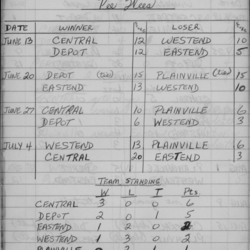 Pee Wees
DATE WINNER Runs LOSER Runs
JUNE 13 CENTRAL 12 WESTEND 10
DEPOT 12 EASTEND 5
JUNE 20 DEPOT (tie) 15 PLAINVILLE (tie) 15
EASTEND 13 WESTEND 10
JUNE 27 CENTRAL 10 PLAINVILLE 6
DEPOT 6 WESTEND 3
JULY 4 WESTEND 13 PLAINVILLE 6
CENTRAL 20 EASTEND 3
TEAM STANDING
W L T Pts.
CENTRAL 3 0 0 6
DEPOT 2 0 1 5
EASTEND 1 2 0 2
WESTEND 1 3 0 2
PLAINVILLE